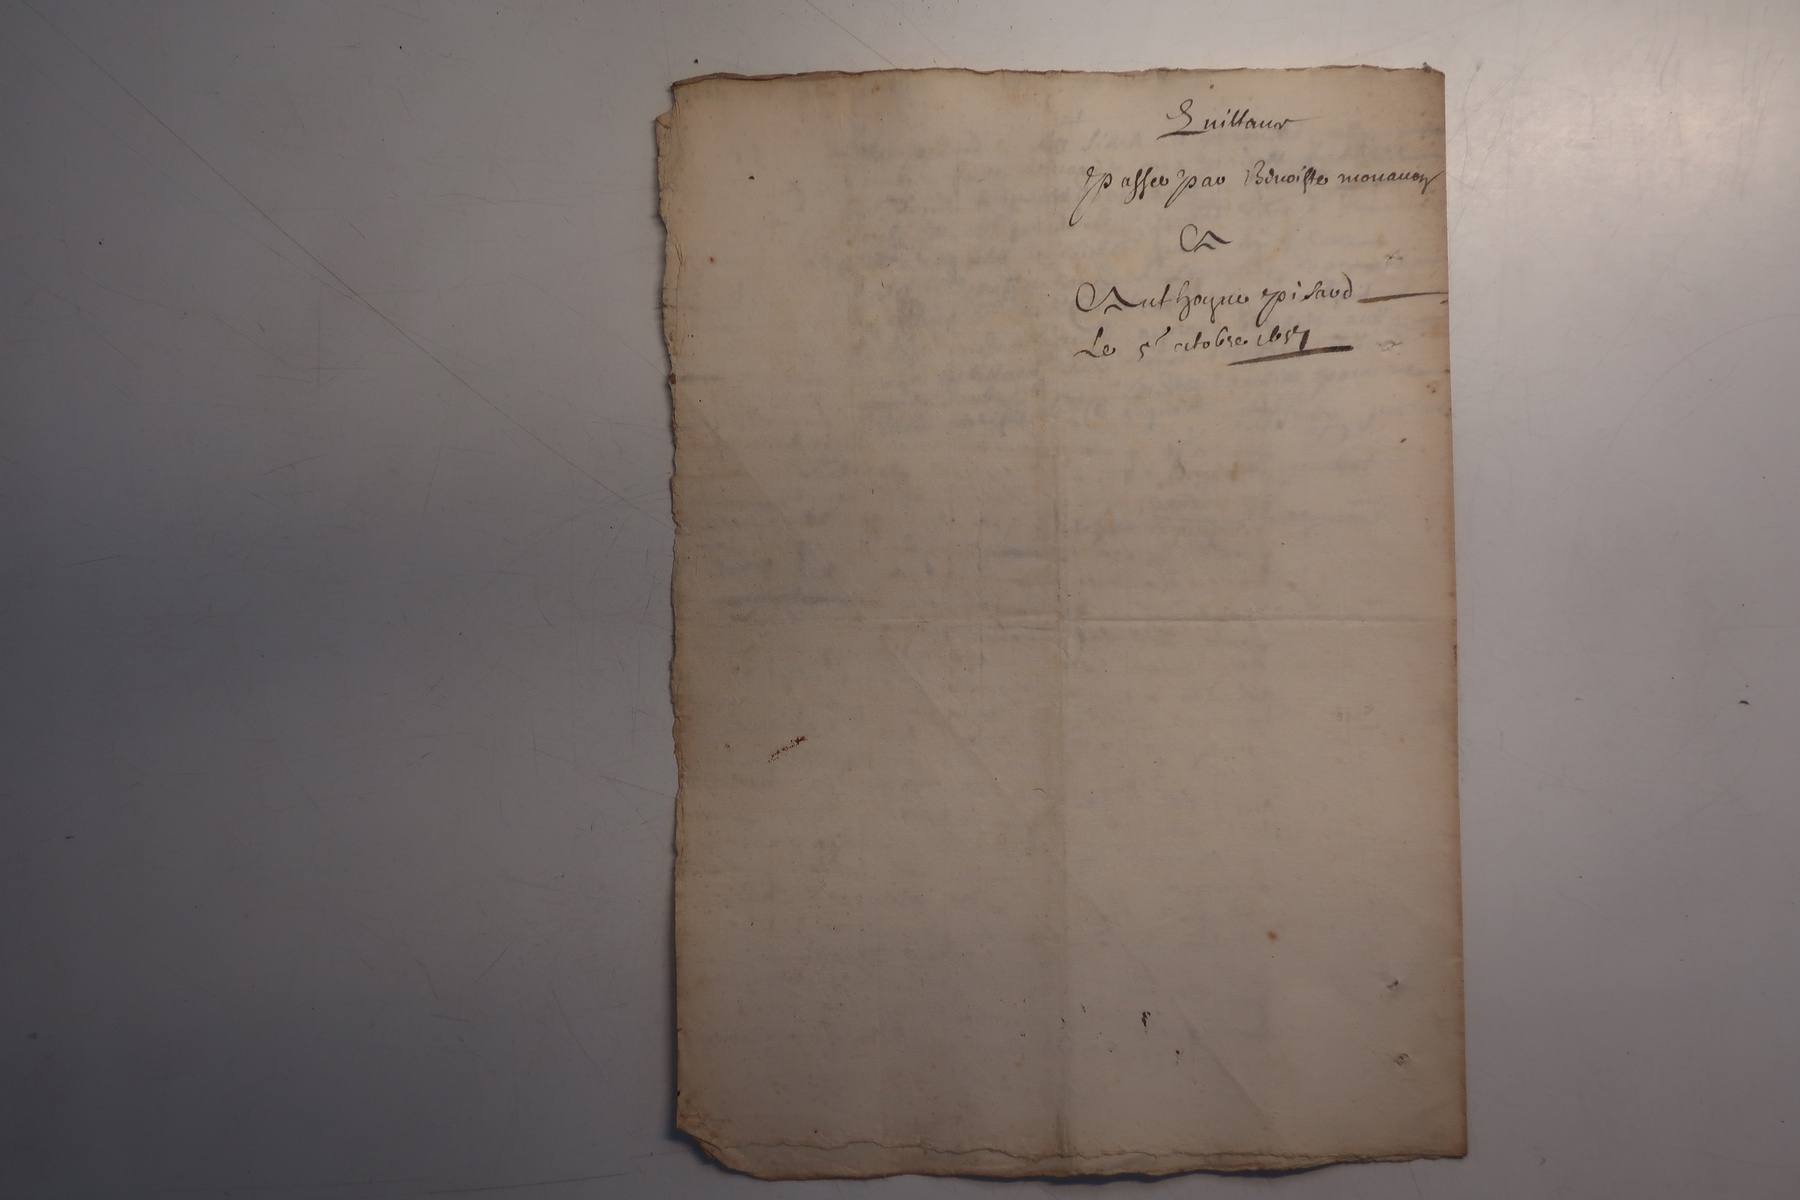 Quittance
passee par Benoiste monavon
A
Anthoyne pisard
Le 5e octobre 1657